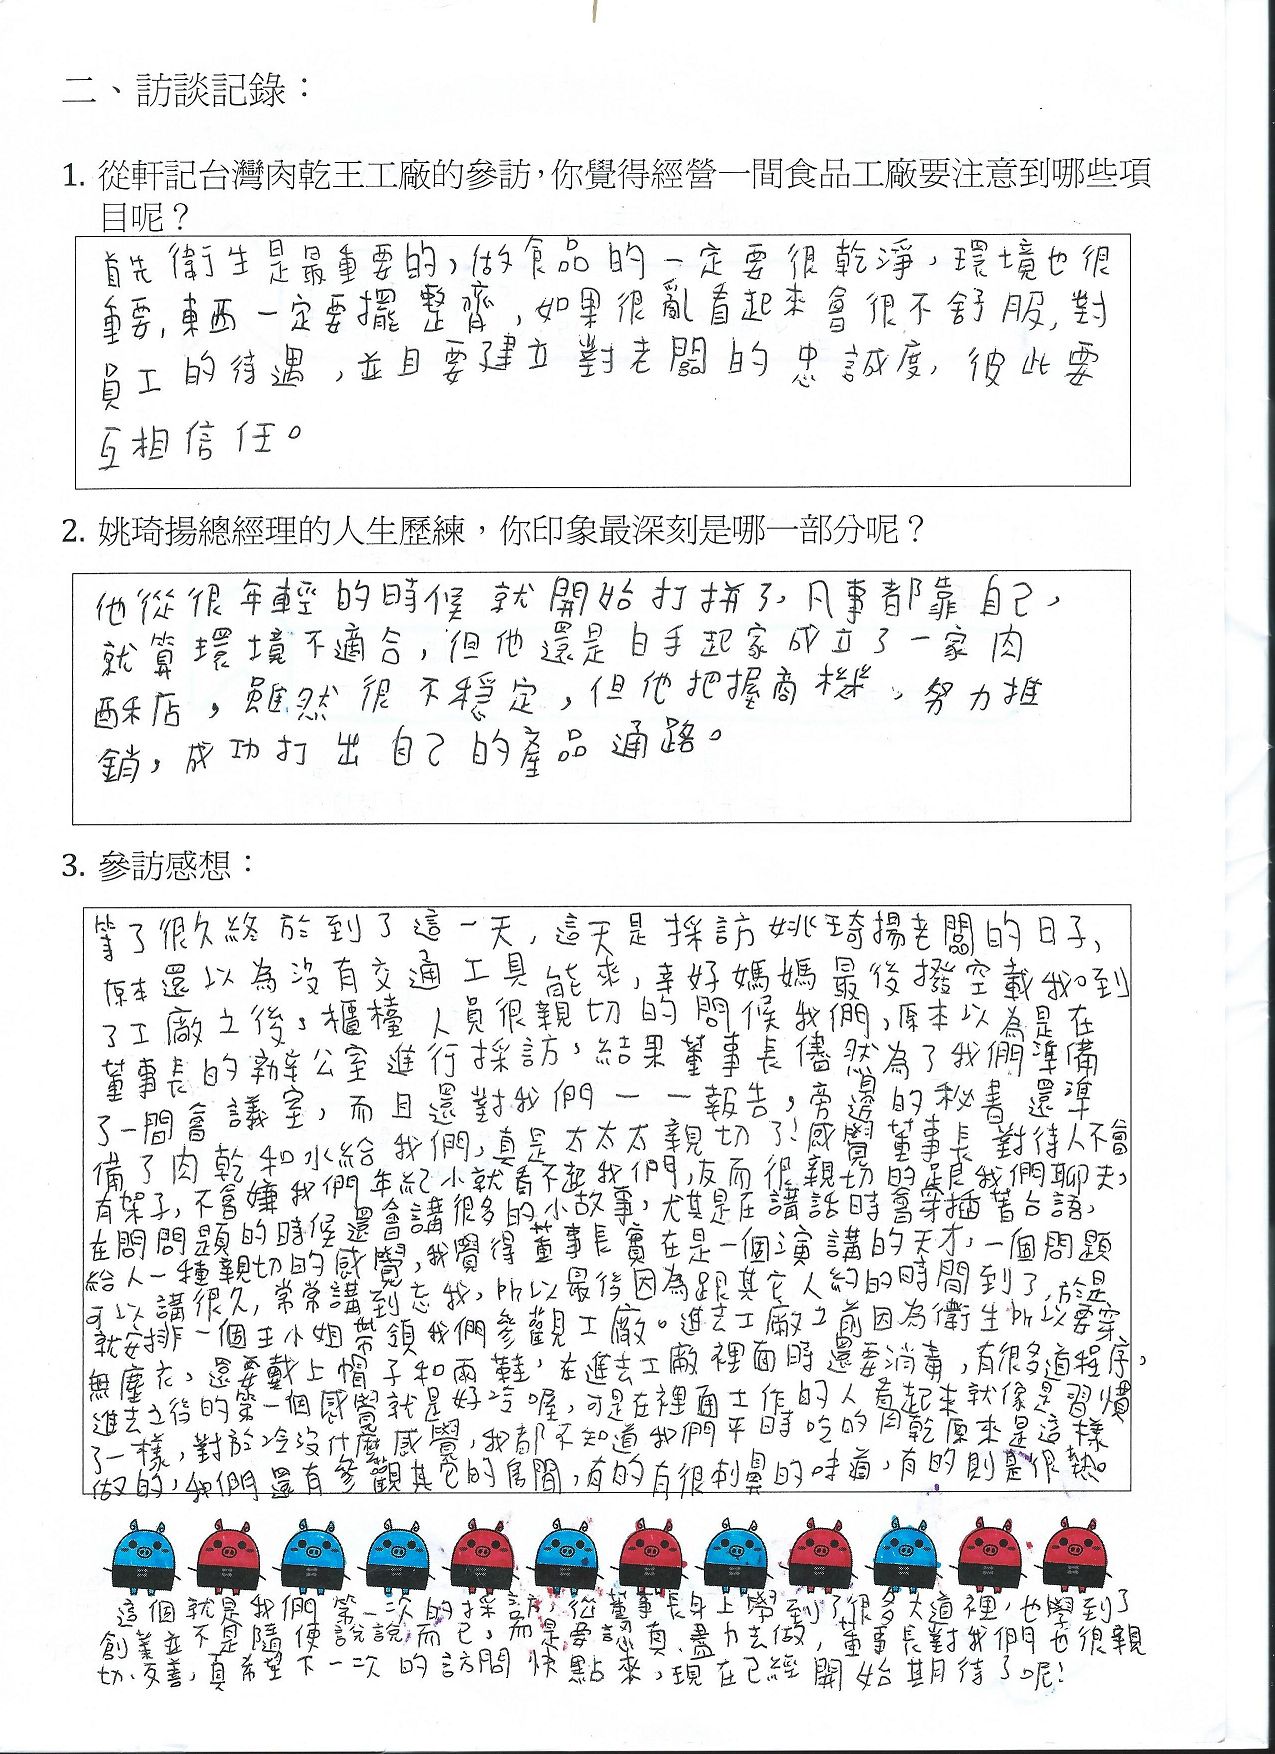 二、訪談記錄：
1. 從軒記台灣肉乾王工廠的參訪，你覺得經營一間食品工廠要注意到哪些項
目呢？
首先衛生是最重要的，做食品的一定要很乾淨，環境也很
重要，東西一定要擺整齊，如果很亂看起來會很不舒服，對
員工的待遇，並且要建立對老闆的忠誠度，彼此要
互相信任。
2. 姚琦揚總經理的人生歷練，你印象最深刻是哪一部分呢？
他從很年輕的時候就開始打拼了，凡事都靠自己，
就算環境不適合，但他還是白手起家成立了一家肉
酥店，雖然很不穩定，但他把握商機，努力推
銷，成功打出自己的產品通路。
3. 參訪感想：
等了很久終於到了這一天，這天是採訪姚琦揚老闆的日子，
原本還以為沒有交通工具能來，幸好媽媽最後撥空載我。到
了工廠之後，櫃檯人員很親切的問候我們，原本以為是在
董事長的辦公室進行採訪，結果董事長儘然為了我們準備
了一間會議室，而且還對我們一一報告，旁邊的秘書還準
備了肉乾和水給我們，真是太太太親切了！感覺董事長對待人不會
有架子，不會嫌我們年紀小就看不起我們，反而很親切的跟我們聊天，
在問問題的時候還會講很多的小故事，尤其是在講話時會穿插著台語，
給人一種親切的感覺，我覺得董事長實在是一個演講的天才，一個問題
可以講很久，常常講到忘我，所以最後因為跟其它人約的時間到了，於是
就安排一個王小姐帶領我們參觀工廠。進去工廠之前因為衛生所以要穿
無塵衣，還要戴上帽子和雨鞋，在進去工廠裡面時還要消毒，有很多道程序，
進去之後的第一個感覺就是好冷喔，可是在裡面工作的人看起來就像是習慣
了一樣，對於冷沒什麼感覺，我都不知道我們平時吃的肉乾原來是這樣
做的，我們還有參觀其它的房間，有的有很刺鼻的味道，有的則是很熱。
這個就是我們第一次的採訪，從董事長身上學到了很多大道裡，也學到了
創業並不是隨便說說而已，而是要認真、盡力去做，董事長對我們也很親
切、友善，真希望下一次的訪問快點來，現在已經開始其月待了呢！